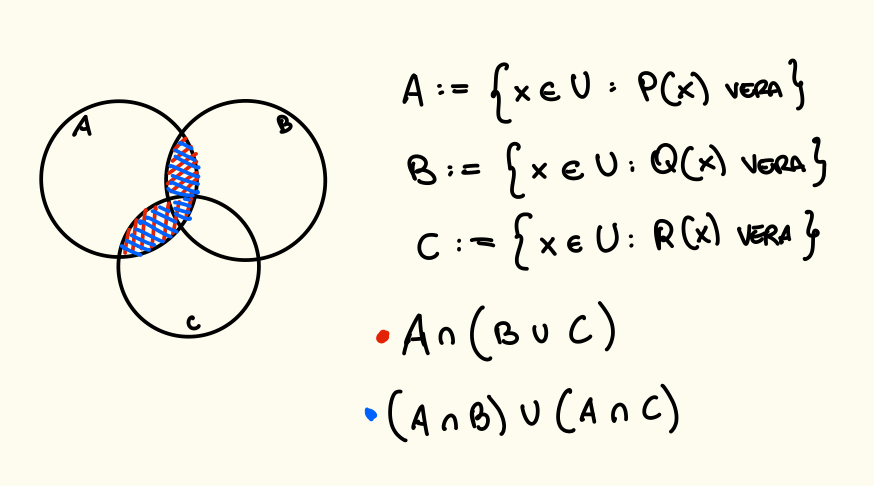 A
B
C
A := {x ∈ U : P(x) VERA}
B := {x ∈ U : Q(x) VERA}
C := {x ∈ U : R(x) VERA}
• A ∩ (B ∪ C)
• (A ∩ B) ∪ (A ∩ C)